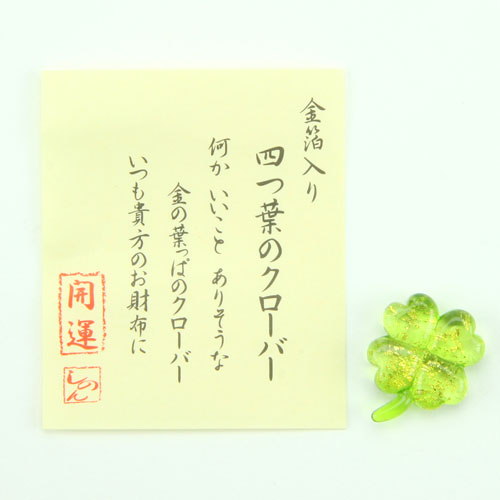 金箔入り
四つ葉のクローバー
何か いいこと ありそうな
金の葉っぱのクローバー
いつも貴方のお財布に
開運
しのん